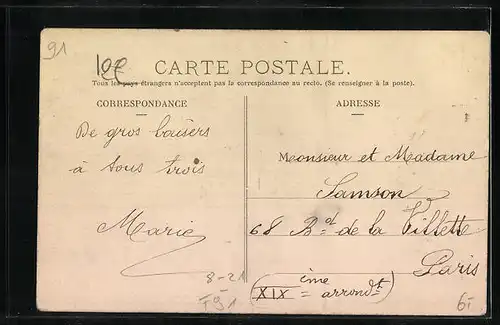 91
CARTE POSTALE.
Tous les pays étrangers n'acceptent pas la correspondance au recto. (Se renseigner à la poste).
CORRESPONDANCE
De gros baisers
à tous trois
Marie
8-21
ADRESSE
Monsieur et Madame
Samson
68 Bd de la Villette
Paris
(XIX ème arrondt)
6-